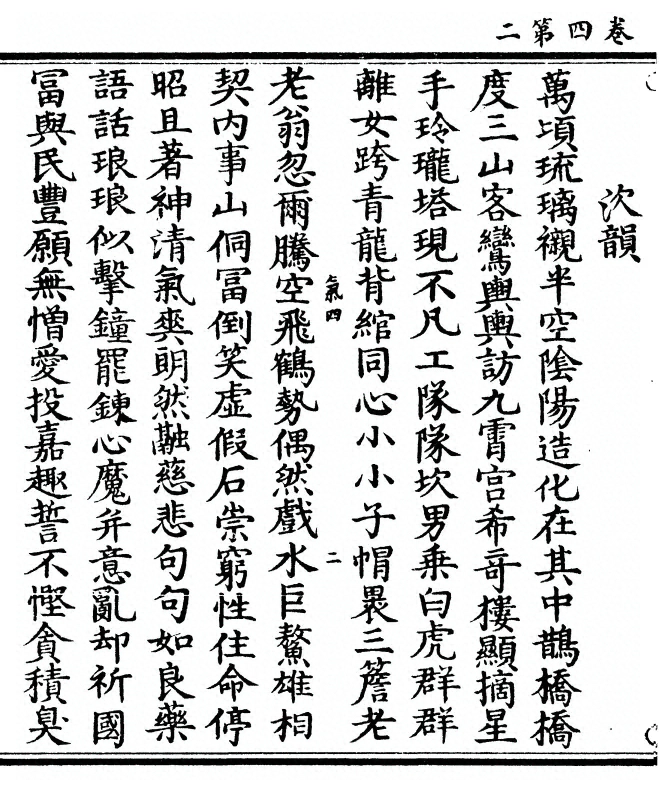 卷四第二
次韻
萬頃琉璃襯半空陰陽造化在其中鵲橋橋
度三山客鸞輿輿訪九霄宫希竒樓顯摘星
手玲瓏塔現不凡工隊隊坎男乗白虎群群
離女跨青龍背綰同心小小子帽褁三簷老
氣四
二
老翁忽爾騰空飛鶴勢偶然戲水巨鰲雄相
契内事山侗冨倒笑虚假石崇窮性住命停
昭且著神清氣爽明然融慈悲句句如良藥
語話琅琅似擊鐘罷鍊心魔并意亂却祈國
冨與民豐願無憎愛投嘉趣誓不慳貪積臭